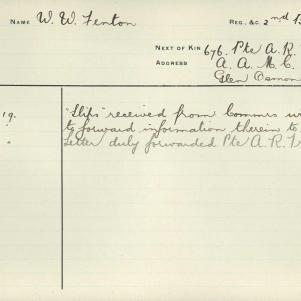 NAME W. W. Fenton REG. &C. 2nd
NEXT OF KIN 676. Pte A. R.
ADDRESS A. A. M. C.
Glen Osmon
19. "Slips" received from Commrs
to forward information therein to
Letter duly forwarded Pte A. R. F